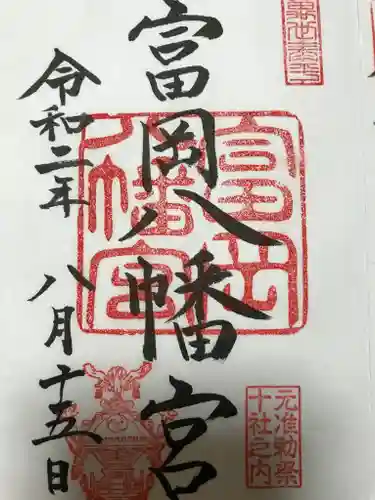 富岡八幡宮
令和二年
八月十五日
富岡
八幡宮
元准勅祭
十社之内